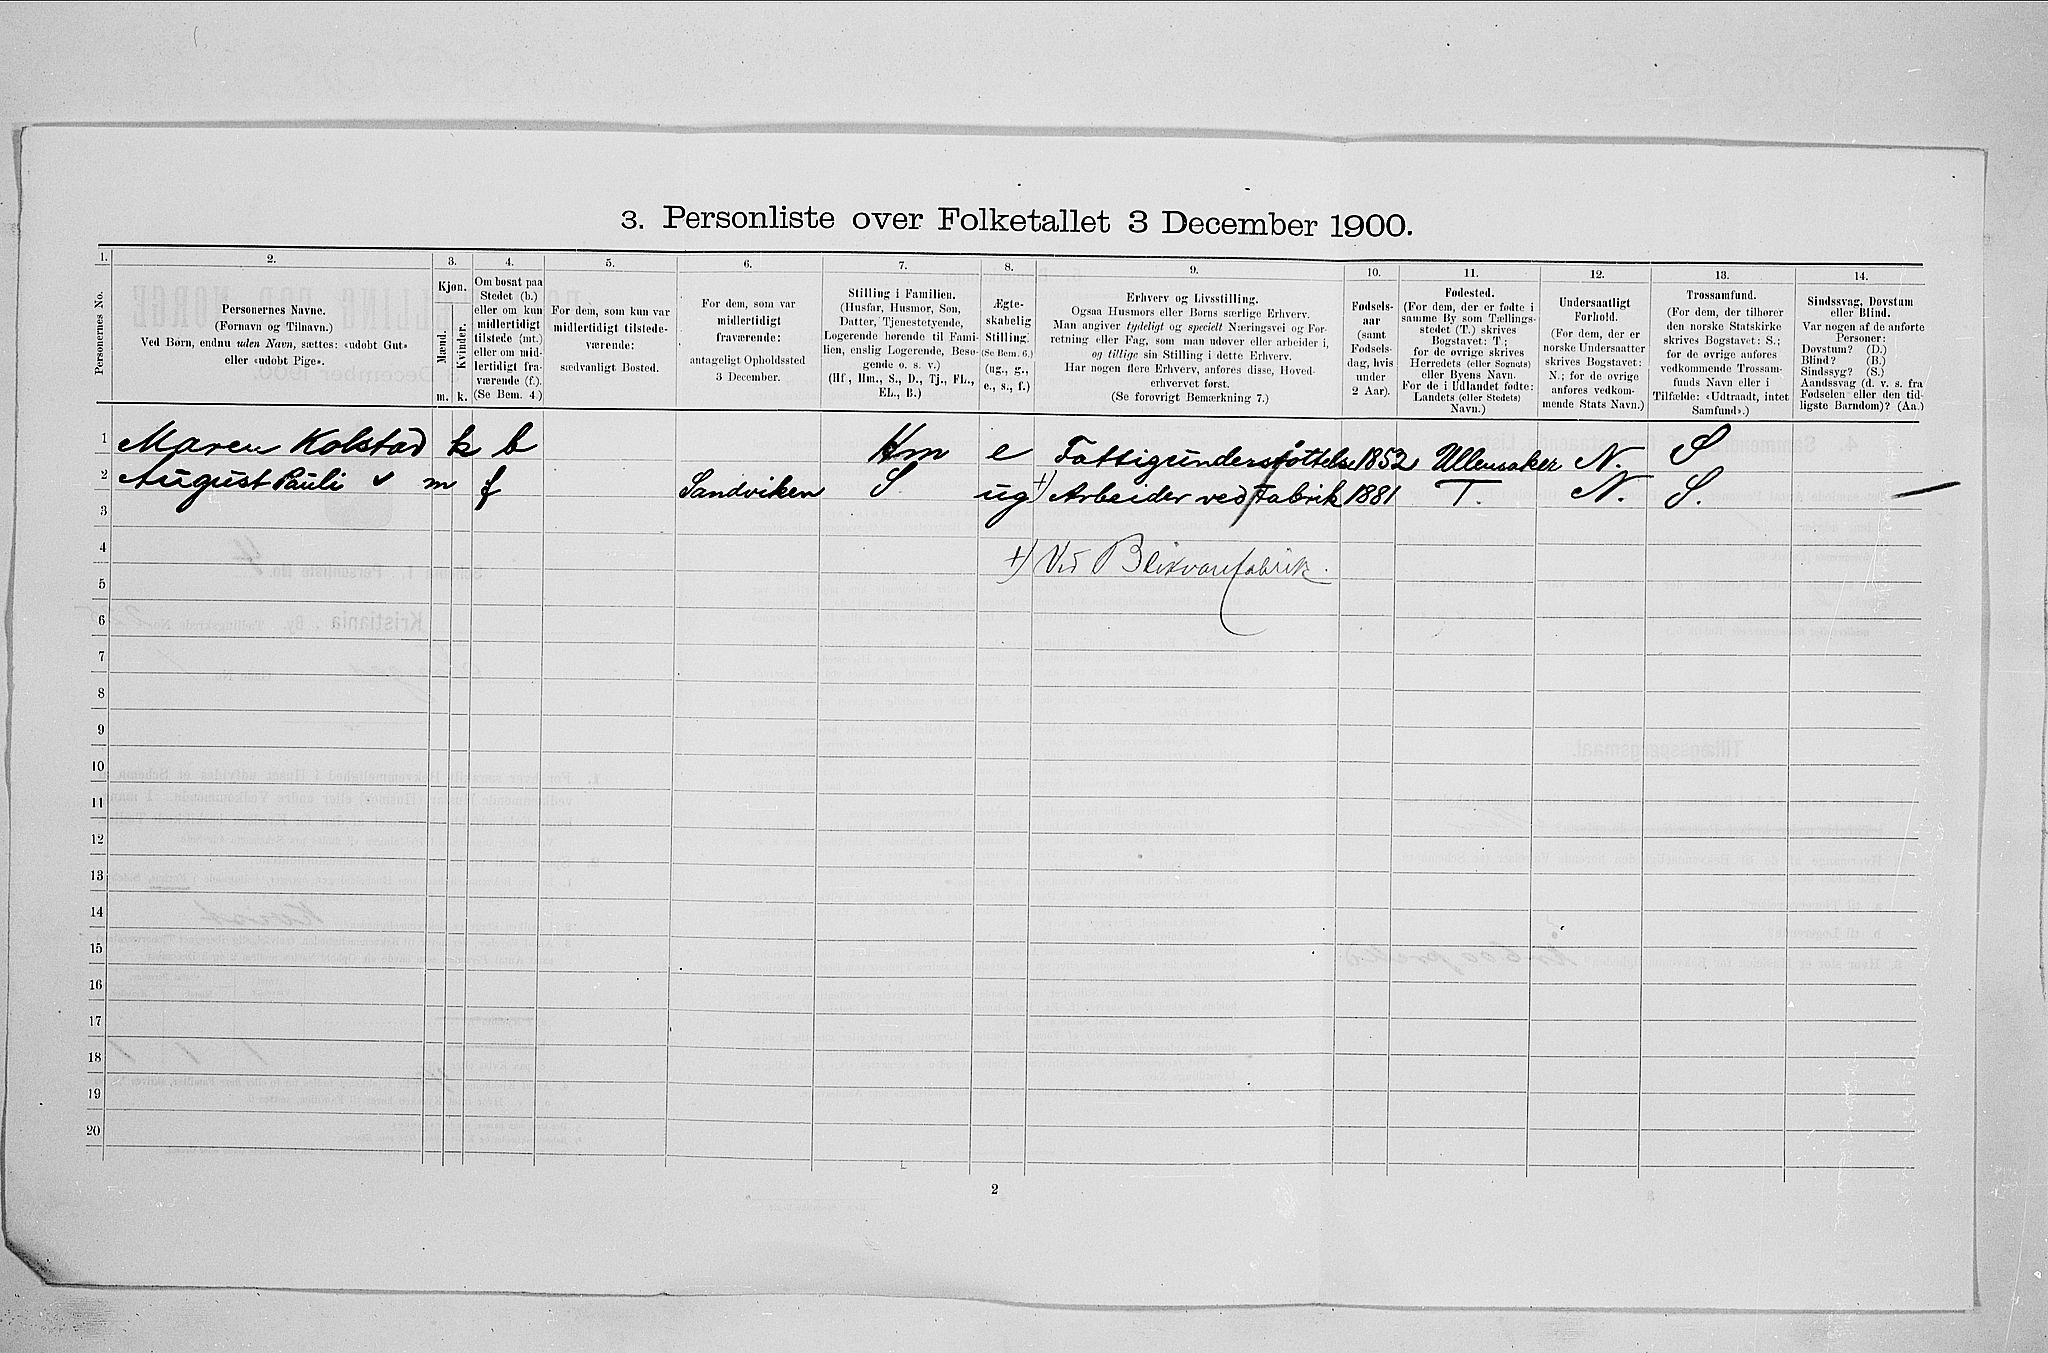 3. Personliste over Folketallet 3 December 1900.
1. 2. 3. 4. 5. 6. 7. 8. 9. 10. 11. 12. 13. 14.
Personernes No.
Personernes Navne.
(Fornavn og Tilnavn.)
Ved Børn, endnu uden Navn, sættes: «udobt Gut»
eller «udobt Pige».
Kjøn.
Mænd.
Kvinder.
m. k.
Om bosat paa
Stedet (b.)
eller om kun
midlertidigt
tilstede (mt.)
eller om mid-
lertidigt fra-
værende (f.).
(Se Bem. 4.)
For dem, som kun var
midlertidigt tilstede-
værende:
sædvanligt Bosted.
For dem, som var
midlertidigt
fraværende:
antageligt Opholdssted
3 December.
Stilling i Familien.
(Husfar, Husmor, Søn,
Datter, Tjenestetyende,
Logerende hørende til Fami-
lien, enslig Logerende, Besø-
gende o. s. v.)
(Hf., Hm., S., D., Tj., FL.,
EL., B.)
Ægte-
skabelig
Stilling.
(Se Bem. 6.)
(ug., g.,
e., s., f.)
Erhverv og Livsstilling.
Ogsaa Husmors eller Børns særlige Erhverv.
Man angiver tydeligt og specielt Næringsvei og For-
retning eller Fag, som man udøver eller arbeider i,
og tillige sin Stilling i dette Erhverv.
Har nogen flere Erhverv, anføres disse, Hoved-
erhvervet først.
(Se forøvrigt Bemærkning 7.)
Fødsels-
aar
(samt
Fødsels-
dag, hvis
under
2 Aar).
Fødested.
(For dem, der er fødte i
samme By som Tællings-
stedet (T.) skrives
Bogstavet: T.;
for de øvrige skrives
Herredets (eller Sognets)
eller Byens Navn.
For de i Udlandet fødte:
Landets (eller Stedets)
Navn.)
Undersaatligt
Forhold.
(For dem, der er
norske Undersaatter
skrives Bogstavet:
N.; for de øvrige
anføres vedkom-
mende Stats Navn.)
Trossamfund.
(For dem, der tilhører
den norske Statskirke
skrives Bogstavet: S.;
for de øvrige anføres
vedkommende Trossam-
funds Navn eller i
Tilfælde: «Udtraadt, intet
Samfund».)
Sindssvag, Døvstum
eller Blind.
Var nogen af de anførte
Personer:
Døvstum? (D.)
Blind? (B.)
Sindssyg? (S.)
Aandssvag (d. v. s. fra
Fødselen eller den tid-
ligste Barndom)? (Aa.)
1 Maren Kolstad k b Hm e Fattigunderstøttelse 1852 Ullensaker N. S
2 August Pauli v m f Sandviken S. ug +) Arbeider ved Fabrik 1881 T. N. S. —
3
4 +) Ved Blikvarefabrik.
5
6
7
8
9
10
11
12
13
14
15
16
17
18
19
20
2